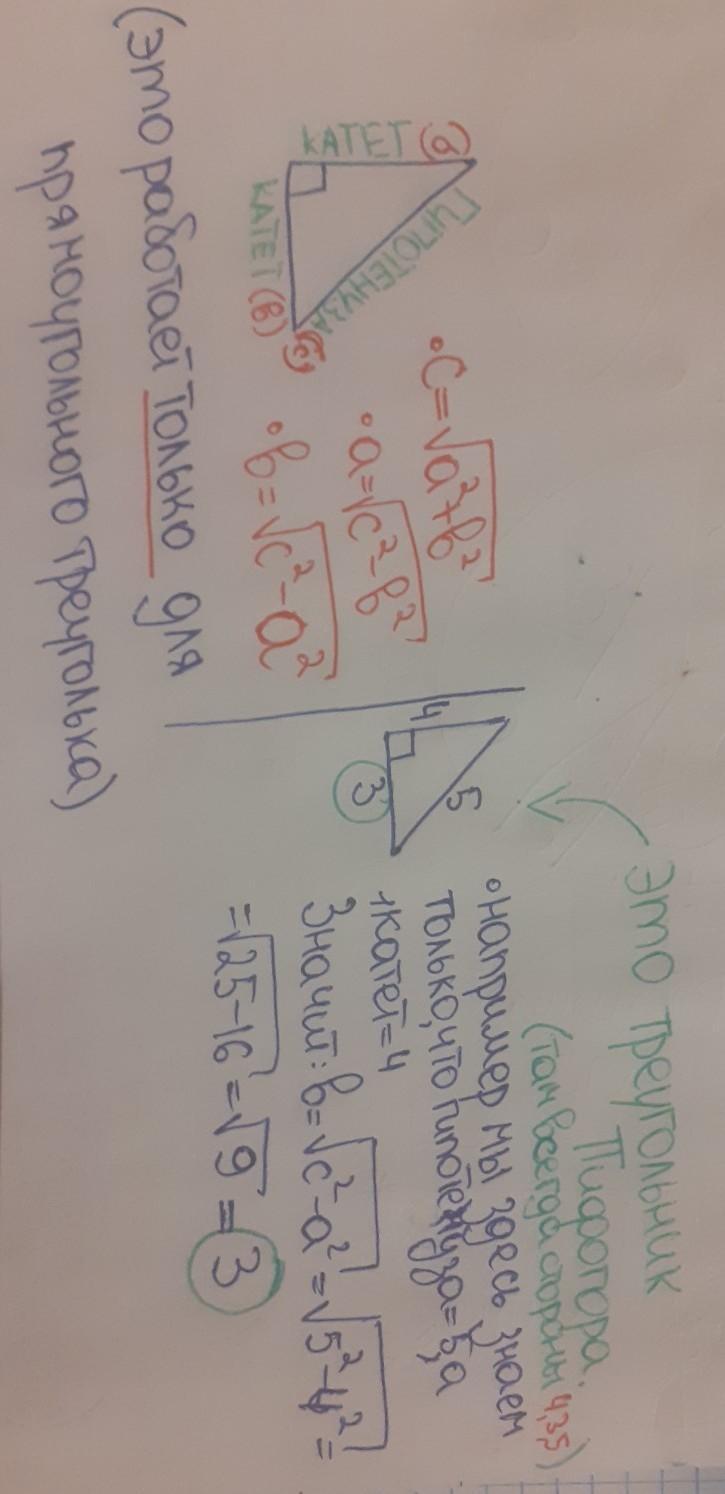 КАТЕТ (a)
ГИПОТЕНУЗА
(c)
КАТЕТ (в)
•c=√a²+в²
•a=√c²-в²
•в=√c²-a²
(это работает только для
прямоугольного треуголька)
Это треугольник
Пифогора.
(там всегда стороны 4,3,5)
4
5
3
•например мы здесь знаем
только, что гипотенуза=5, а
1катет=4
Значит: в=√c²-a²=√5²-4²=
=√25-16=√9=3